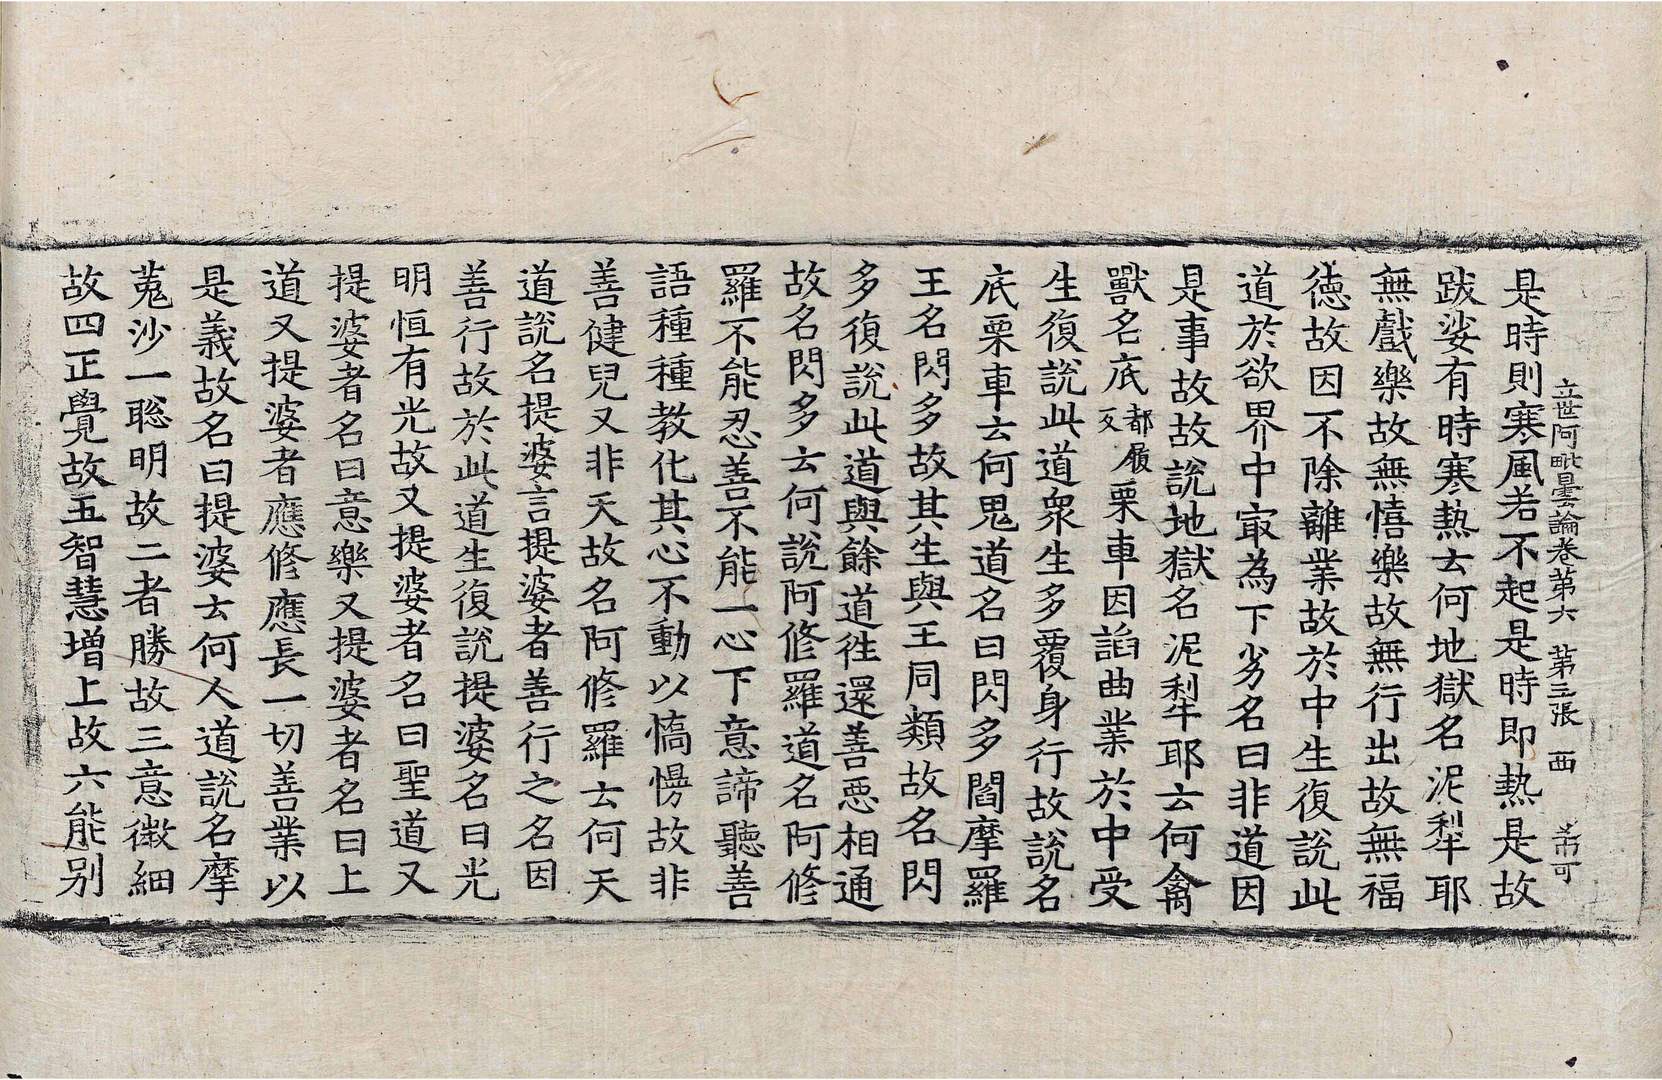 立世阿毗曇論卷第六 第三張 西
是時則寒風若不起是時即熱是故
跋娑有時寒熱云何地獄名泥犁耶
無戲樂故無憘樂故無行出故無福
徳故因不除離業故於中生復說此
道於欲界中㝡為下劣名曰非道因
是事故故說地獄名泥犁耶云何禽
獸名底都履反栗車因謟曲業於中受
生復說此道衆生多覆身行故說名
底栗車云何鬼道名曰閃多閻摩羅
王名閃多故其生與王同類故名閃
多復說此道與餘道往還善惡相通
故名閃多云何說阿修羅道名阿修
羅不能忍善不能一心下意諦聽善
語種種教化其心不動以憍慢故非
善健兒又非天故名阿修羅云何天
道說名提婆言提婆者善行之名因
善行故於此道生復說提婆名曰光
明恒有光故又提婆者名曰聖道又
提婆者名曰意樂又提婆者名曰上
道又提婆者應修應長一切善業以
是義故名曰提婆云何人道說名摩
㝹沙一聡明故二者勝故三意微細
故四正覺故五智慧增上故六能别